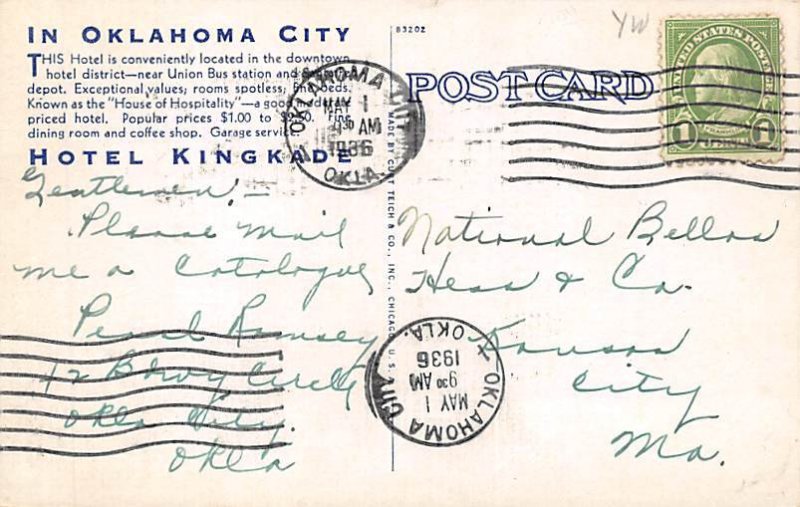 IN OKLAHOMA CITY
THIS Hotel is conveniently located in the downtown
hotel district—near Union Bus station and
depot. Exceptional values; rooms spotless; beds.
Known as the "House of Hospitality"—a good
priced hotel. Popular prices $1.00 to Fine
dining room and coffee shop. Garage service.
HOTEL KINGKADE
83202
POST CARD
YW
UNITED STATES POSTAGE
1 FRANKLIN 1
OKLAHOMA CITY
MAY 1
9 30 AM
1936
OKLA.
MADE BY CURT TEICH & CO., INC., CHICAGO, U. S. A.
Gentlemen,—
Please mail
me a Catalogue
Pearl Ramsey
12 Bdwy Circle
Okla City.
Okla
National Bellas
Hess & Co.
Kansas
City
Mo.
OKLAHOMA CITY
MAY 1
9 30 AM
1936
OKLA.